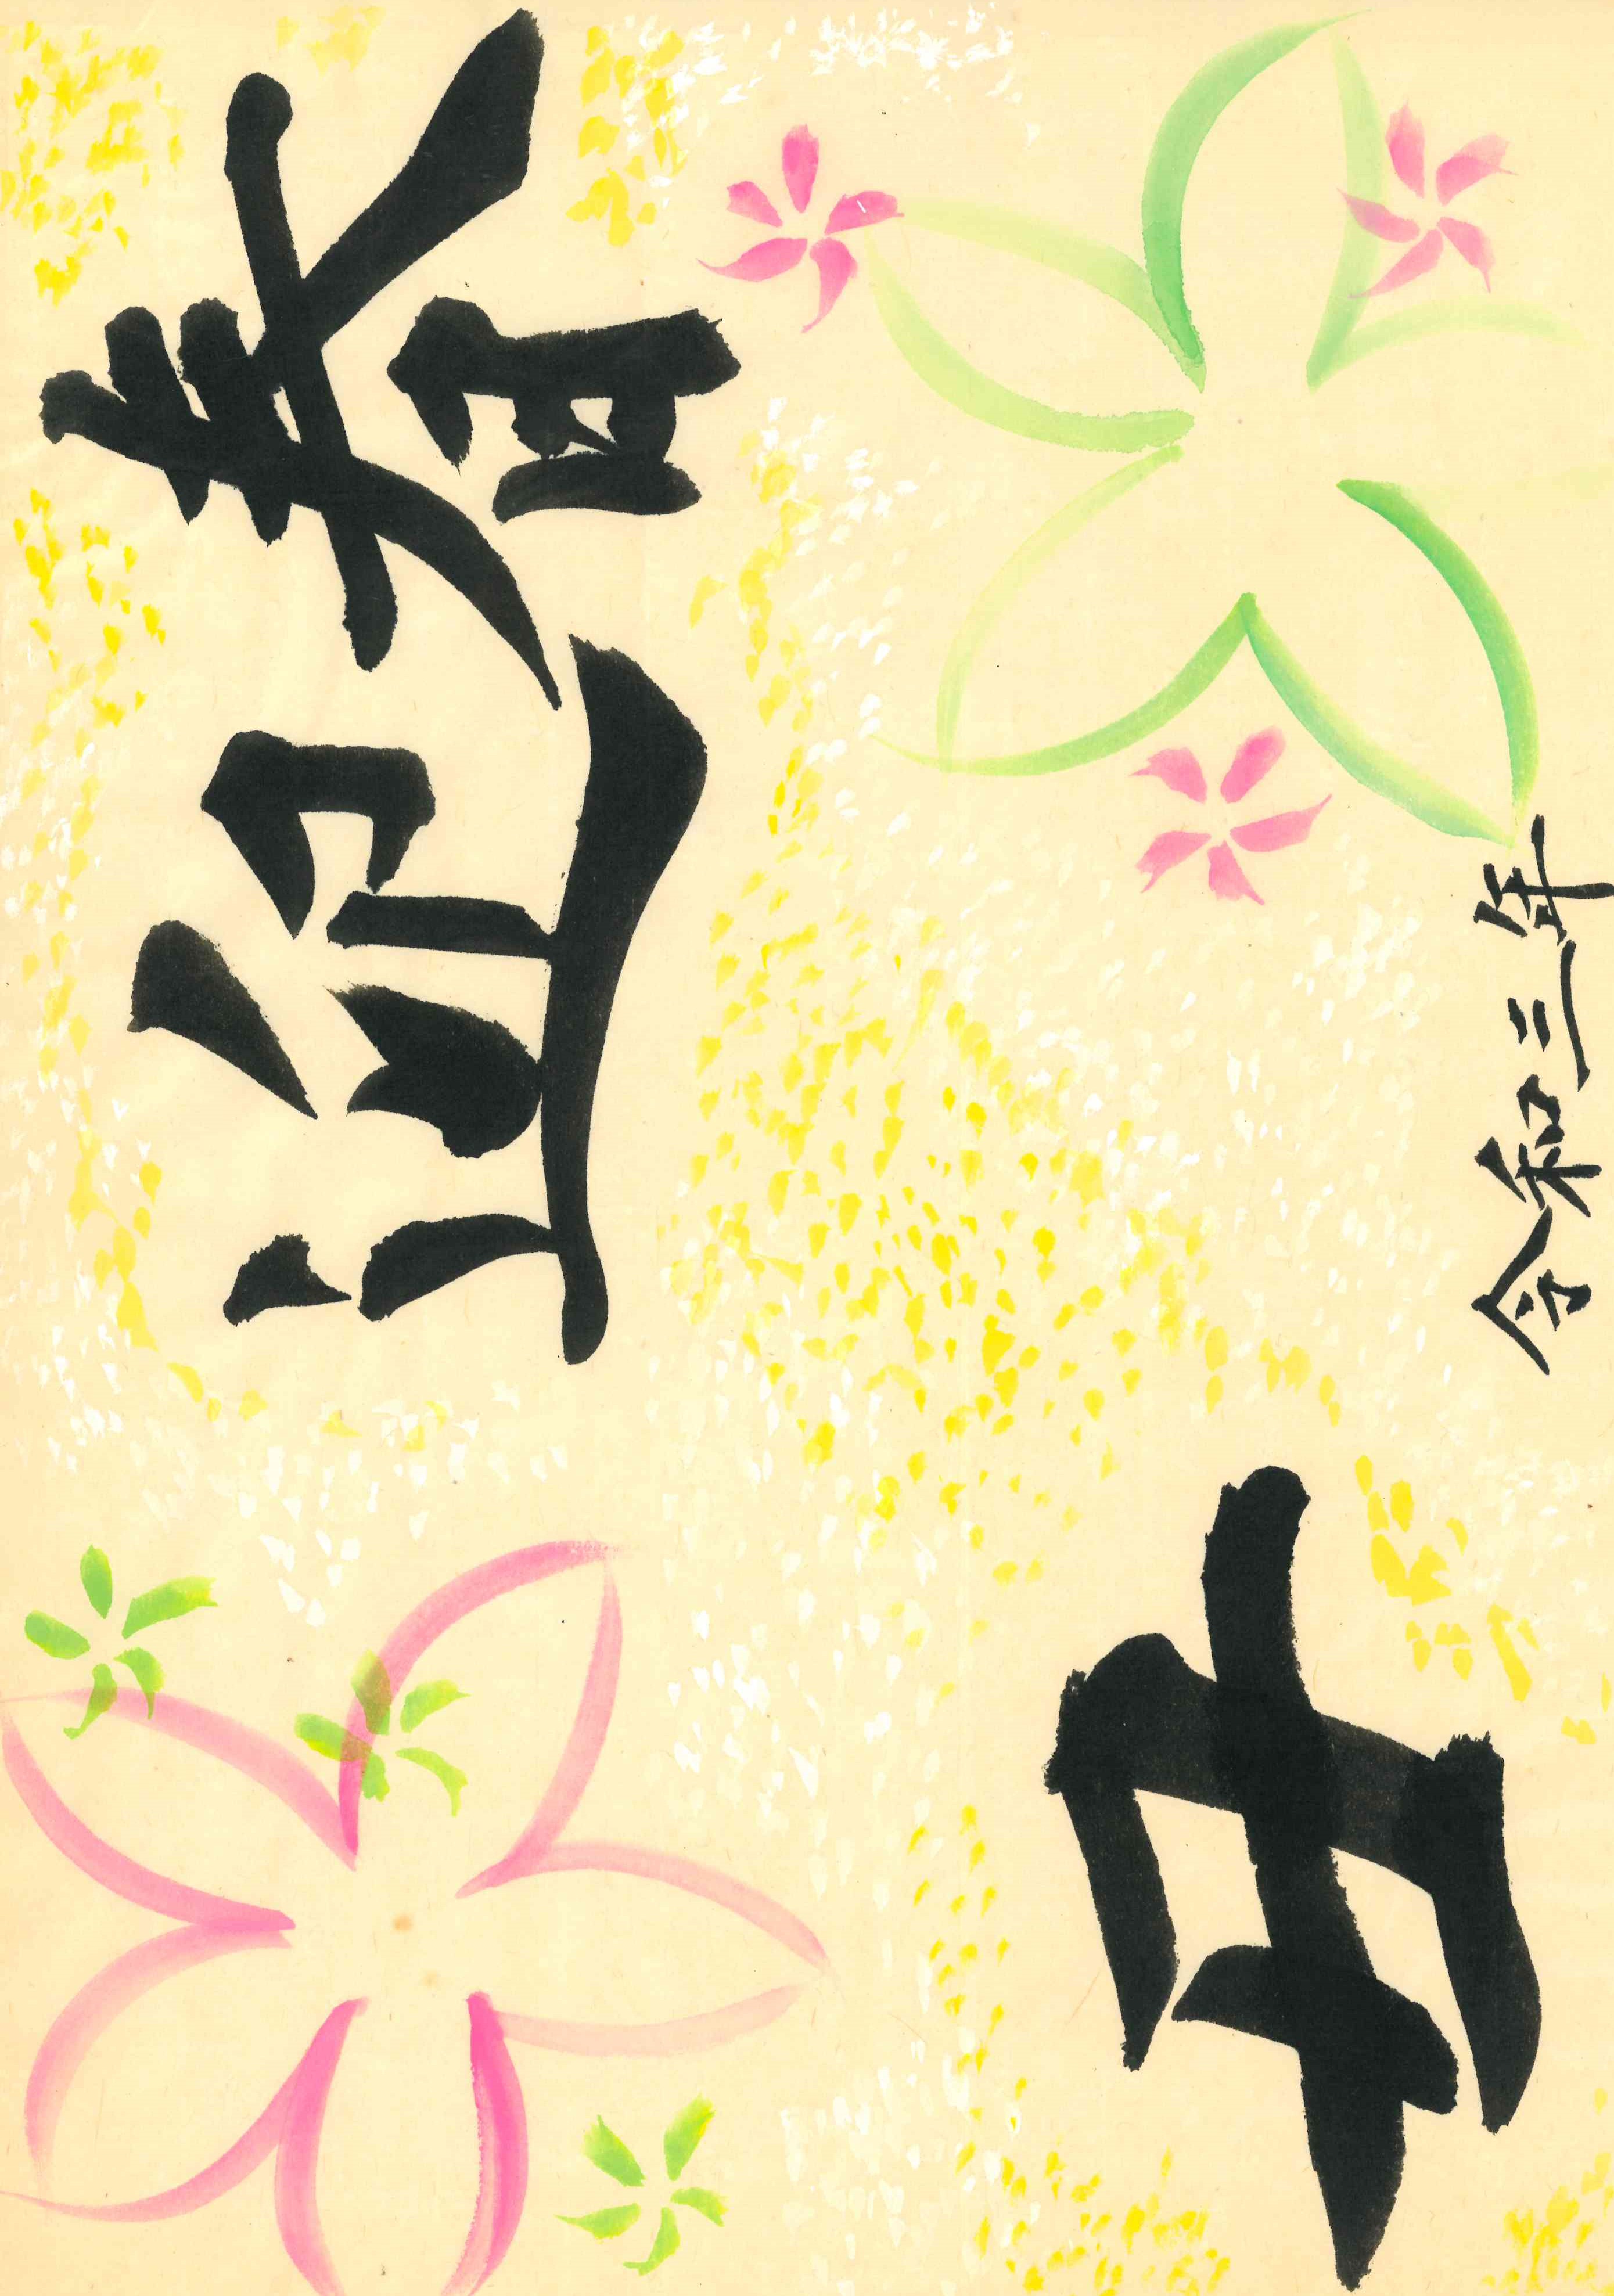 迎春
丑
令和三年